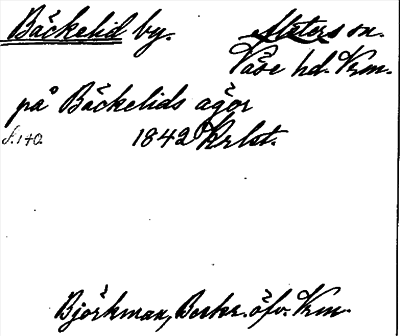 Bäckelid by. Alsters sn.
Väse hd. Vrm.
på Bäckelids ägor
s. 140. 1842 Krlst.
Björkman, Beskr. öfv. Vrm.